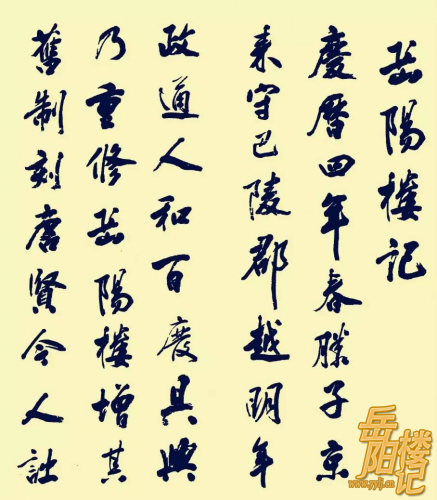 岳陽樓記
慶曆四年春滕子京
来守巴陵郡越明年
政通人和百廢具興
乃重修岳陽樓增其
舊制刻唐賢今人詩
岳阳楼记